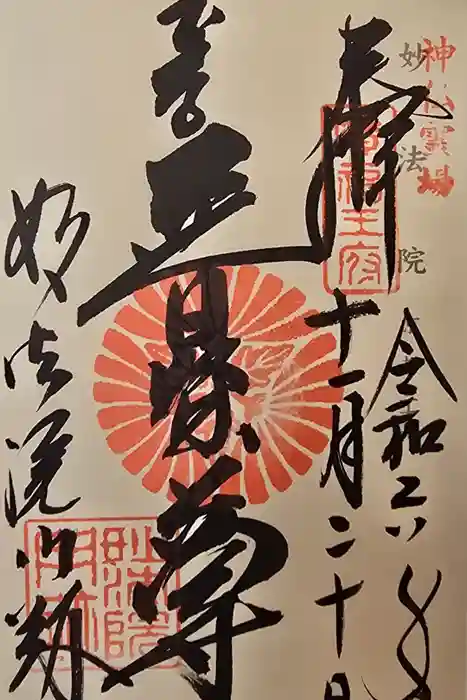 神仏霊場
妙法院
奉拝
令和六年
十一月二十日
普賢尊
妙法院門跡